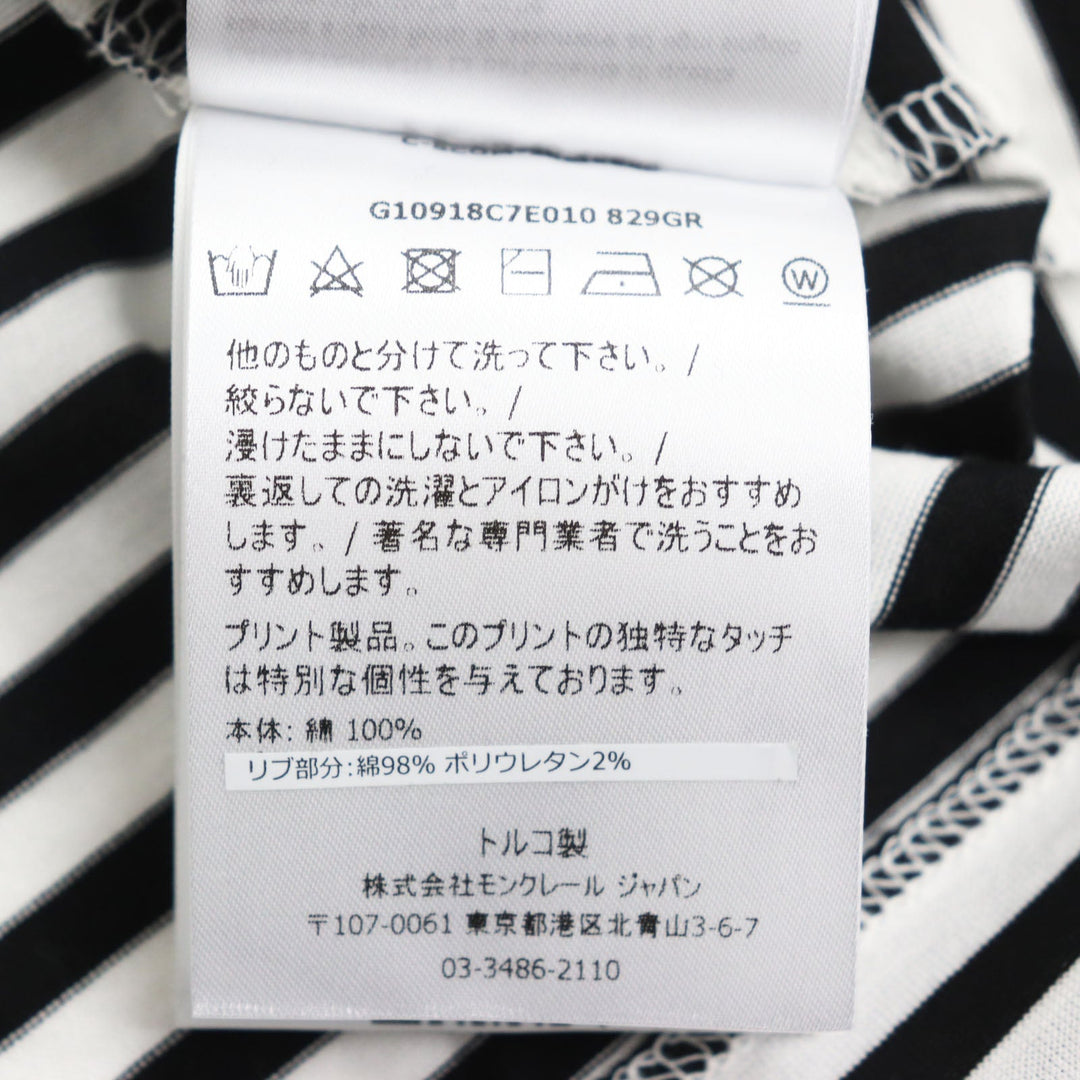 G10918C7E010 829GR
W
他のものと分けて洗って下さい。/
絞らないで下さい。/
浸けたままにしないで下さい。/
裏返しての洗濯とアイロンがけをおすすめ
します。/ 著名な専門業者で洗うことをお
すすめします。
プリント製品。このプリントの独特なタッチ
は特別な個性を与えております。
本体: 綿 100%
リブ部分:綿98% ポリウレタン2%
トルコ製
株式会社モンクレール ジャパン
〒107-0061 東京都港区北青山3-6-7
03-3486-2110